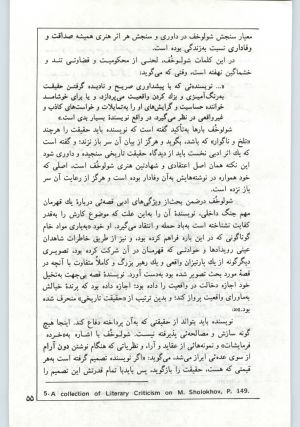 معیار سنجش شولوخف در داوری و سنجش هر اثر هنری همیشه صداقت و
وفاداری نسبت به‌زندگی بوده است.
در این کلمات شولوخُف، لحنی از محکومیت و قضاوتی تند و
خشماگین نهفته است، وقتی که می‌گوید:
«... نویسنده‌ئی که با پیشداوری صریح و نادیده گرفتن حقیقت
به‌رنگ‌آمیزی و بزك کردن واقعیت می‌پردازد، و یا برای خوشامد
خواننده حساسیت و گرایش‌های او را به‌تمایلات و خواست‌های کاذب و
غیرواقعی در نظر می‌گیرد، در واقع نویسندهٔ بسیار بدی است.»
شولوخُف بارها به‌تأکید گفته است که نویسنده باید حقیقت را هرچند
«تلخ و ناگوار» که باشد، بگوید و هرگز از بیان آن سر باز نزند؛ و گفته است
که یك اثر ادبی نخست باید از دیدگاه حقیقت تاریخی سنجیده و داوری شود
این نکته همان اصل اعتقادی و شهادتین هنری شولوخُف است. اصلی که
خود همواره در نوشته‌هایش به‌آن وفادار بوده است و هرگز از رعایت آن سر
باز نزده است.
شولوخُف درضمن بحث‌از ویژگی‌های ادبی قصه‌ئی دربارهٔ یك قهرمان
مهم جنگ داخلی، نویسندهٔ آن را به‌این علت که موضوع کارش را به‌قدر
کفایت نشناخته است به‌باد حمله و انتقاد می‌گیرد. او خود «به‌یاری مواد خام
گوناگونی که در این باره فراهم کرده بود، و نیز از طریق خاطرات شاهدان
عینی رویدادها و حوادثی که قهرمانان در آن شرکت کرده بود، تصویری
دیگرگونه از یك پارتیزان واقعی و یك رهبر بزرگ و کاملاً متفاوت با آنچه در
قصهٔ مورد بحث تصویر شده بود به‌دست آورد. نویسندهٔ قصه بی‌جهت به‌تخیل
خود اجازه دخالت در واقعیت را داده بود؛ اجازه داده بود که پرندهٔ خیالش
به‌ماورای واقعیت پرواز کند؛ و بدین ترتیب از «حقیقت تاریخی» منحرف شده
بود.
نویسنده باید بتواند از حقیقتی که به‌آن پرداخته دفاع کند. اینجا هیچ
گونه سازش و مصالحه‌ئی پذیرفته نیست. شولوخُف با اشاره به‌«خرده
فرمایشات» و نمونه‌هائی از عقاید و آراء و نظریاتی که هنگام نوشتن دون آرام
از سوی عده‌ئی ابراز می‌شد، می‌گوید: «اگر نویسنده تصمیم گرفته است به‌هر
قیمتی که هست، حقیقت را بازگوید، پس باید‌با تمام قدرتش این تصمیم را
5-A collection of Literary Criticism on M. Sholokhov, P. 149.
۵۵